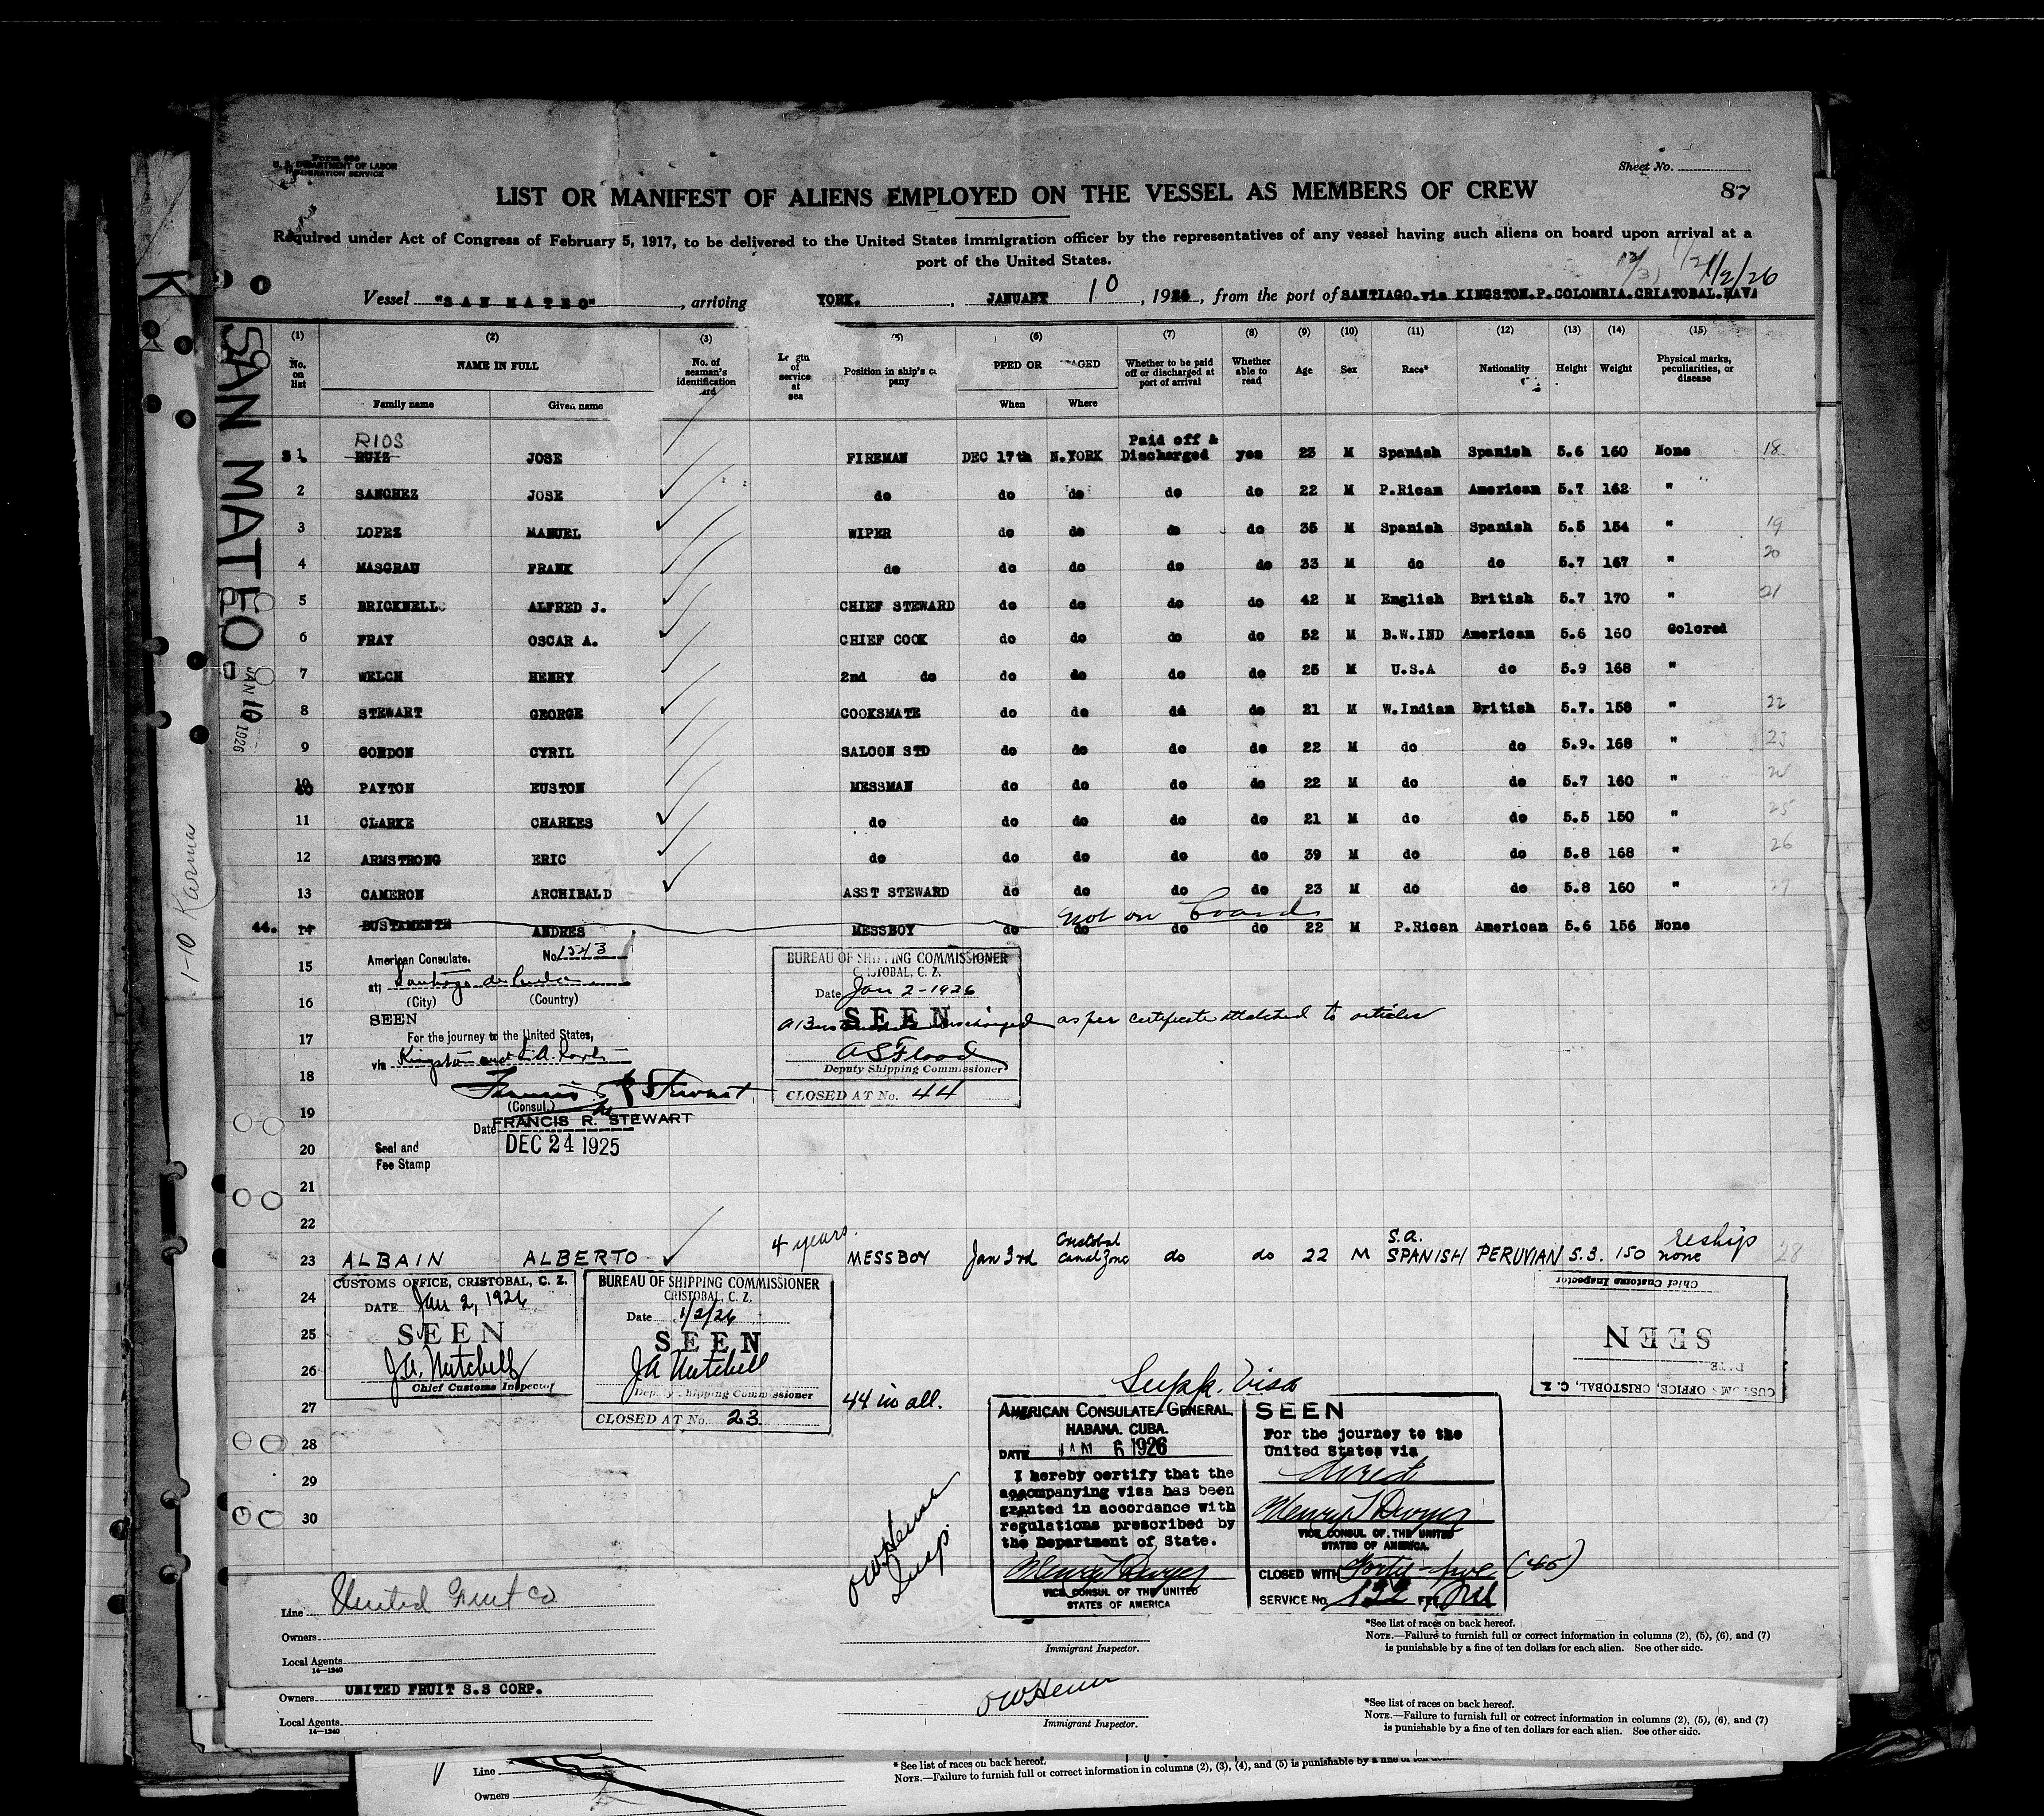 Form 680
U. S. DEPARTMENT OF LABOR
IMMIGRATION SERVICE
Sheet No.
87
LIST OR MANIFEST OF ALIENS EMPLOYED ON THE VESSEL AS MEMBERS OF CREW
Required under Act of Congress of February 5, 1917, to be delivered to the United States immigration officer by the representatives of any vessel having such aliens on board upon arrival at a
port of the United States.
1/2/26
Vessel "SAN MATEO", arriving YORK., JANUARY 10, 1926, from the port of SANTIAGO.via KINGSTON.P.COLOMBIA.CRIATOBAL.HAVA
(1) (2) (3) (5) (6) (7) (8) (9) (10) (11) (12) (13) (14) (15)
No. on list NAME IN FULL Family name Given name No. of seaman's identification ard Length of service at sea Position in ship's c pany PPED OR AGED When Where Whether to be paid off or discharged at port of arrival Whether able to read Age Sex Race* Nationality Height Weight Physical marks, peculiarities, or disease
RIOS
1. RUIZ JOSE FIREMAN DEC 17th N.YORK Paid off & Discharged yes 23 M Spanish Spanish 5.6 160 None 18
2 SANCHEZ JOSE do do do do do 22 M P.Rican American 5.7 162 "
3 LOPEZ MANUEL WIPER do do do do 35 M Spanish Spanish 5.5 154 " 19
4 MASGRAU FRANK do do do do do 33 M do do 5.7 167 " 20
5 BRICKNELL ALFRED J. CHIEF STEWARD do do do do 42 M English British 5.7 170 " 21
6 FRAY OSCAR A. CHIEF COOK do do do do 52 M B.W.IND American 5.6 160 Colored
7 WELCH HENRY 2nd do do do do do 25 M U.S.A do 5.9 168 "
8 STEWART GEORGE COOKSMATE do do do do 21 M W.Indian British 5.7. 158 " 22
9 GONDON CYRIL SALOON STD do do do do 22 M do do 5.9. 168 " 23
10 PAYTON EUSTON MESSMAN do do do do 22 M do do 5.7 160 "
11 CLARKE CHARKES do do do do do 21 M do do 5.5 150 " 25
12 ARMSTRONG ERIC do do do do do 39 M do do 5.8 168 " 26
13 CAMERON ARCHIBALD ASST STEWARD do do do do 23 M do do 5.8 160 " 27
not on board
44. 14 BUSTAMENTE ANDRES MESSBOY do do do do 22 M P.Rican American 5.6 156 None
15
16
17
18
19
20
21
22
American Consulate. No. 1543
at; Santiago de Cuba
(City) (Country)
SEEN
For the journey to the United States,
via Kingston and
Francis R Stewart
(Consul.)
FRANCIS R. STEWART
Date DEC 24 1925
Seal and
Fee Stamp
BUREAU OF SHIPPING COMMISSIONER
CRISTOBAL, C. Z.
Date Jan 2-1926
SEEN
as per certificate attached to articles
A S Flood
Deputy Shipping Commissioner
CLOSED AT No. 44
23 ALBAIN ALBERTO 4 years. MESSBOY Jan 3rd Cristobal Canal Zone do do 22 M S.A. SPANISH PERUVIAN 5.3. 150 reship none 28
24
25
26
27
28
29
30
CUSTOMS OFFICE, CRISTOBAL, C. Z.
DATE Jan 2, 1926
SEEN
J.A. Mitchell
Chief Customs Inspector
BUREAU OF SHIPPING COMMISSIONER
CRISTOBAL, C. Z.
Date 1/2/26
SEEN
JA Mitchell
Deputy Shipping Commissioner
CLOSED AT No. 23
44 in all.
CUSTOMS OFFICE, CRISTOBAL, C. Z.
DATE
SEEN
Chief Customs Inspector
Supp. Visa
AMERICAN CONSULATE GENERAL
HABANA. CUBA.
DATE JAN 6 1926
I hereby certify that the
accompanying visa has been
granted in accordance with
regulations prescribed by
the Department of State.
VICE CONSUL OF THE UNITED
STATES OF AMERICA
SEEN
For the journey to the
United States via
direct
VICE CONSUL OF THE UNITED
STATES OF AMERICA.
CLOSED WITH Forty-five (45)
SERVICE No. 132 FEE
Insp
Line United Fruit Co
Owners
Local Agents
14—1240
Immigrant Inspector.
*See list of races on back hereof.
NOTE.—Failure to furnish full or correct information in columns (2), (5), (6), and (7)
is punishable by a fine of ten dollars for each alien. See other side.
Owners UNITED FRUIT S.S CORP.
Local Agents
14—1240
Immigrant Inspector.
*See list of races on back hereof.
NOTE.—Failure to furnish full or correct information in columns (2), (5), (6), and (7)
is punishable by a fine of ten dollars for each alien. See other side.
Line
Owners
*See list of races on back hereof.
NOTE.—Failure to furnish full or correct information in columns (2), (3), (4), and (5) is punishable by a fine of ten
K
SAN MATEO
JAN 10 1926
1-10 Karma